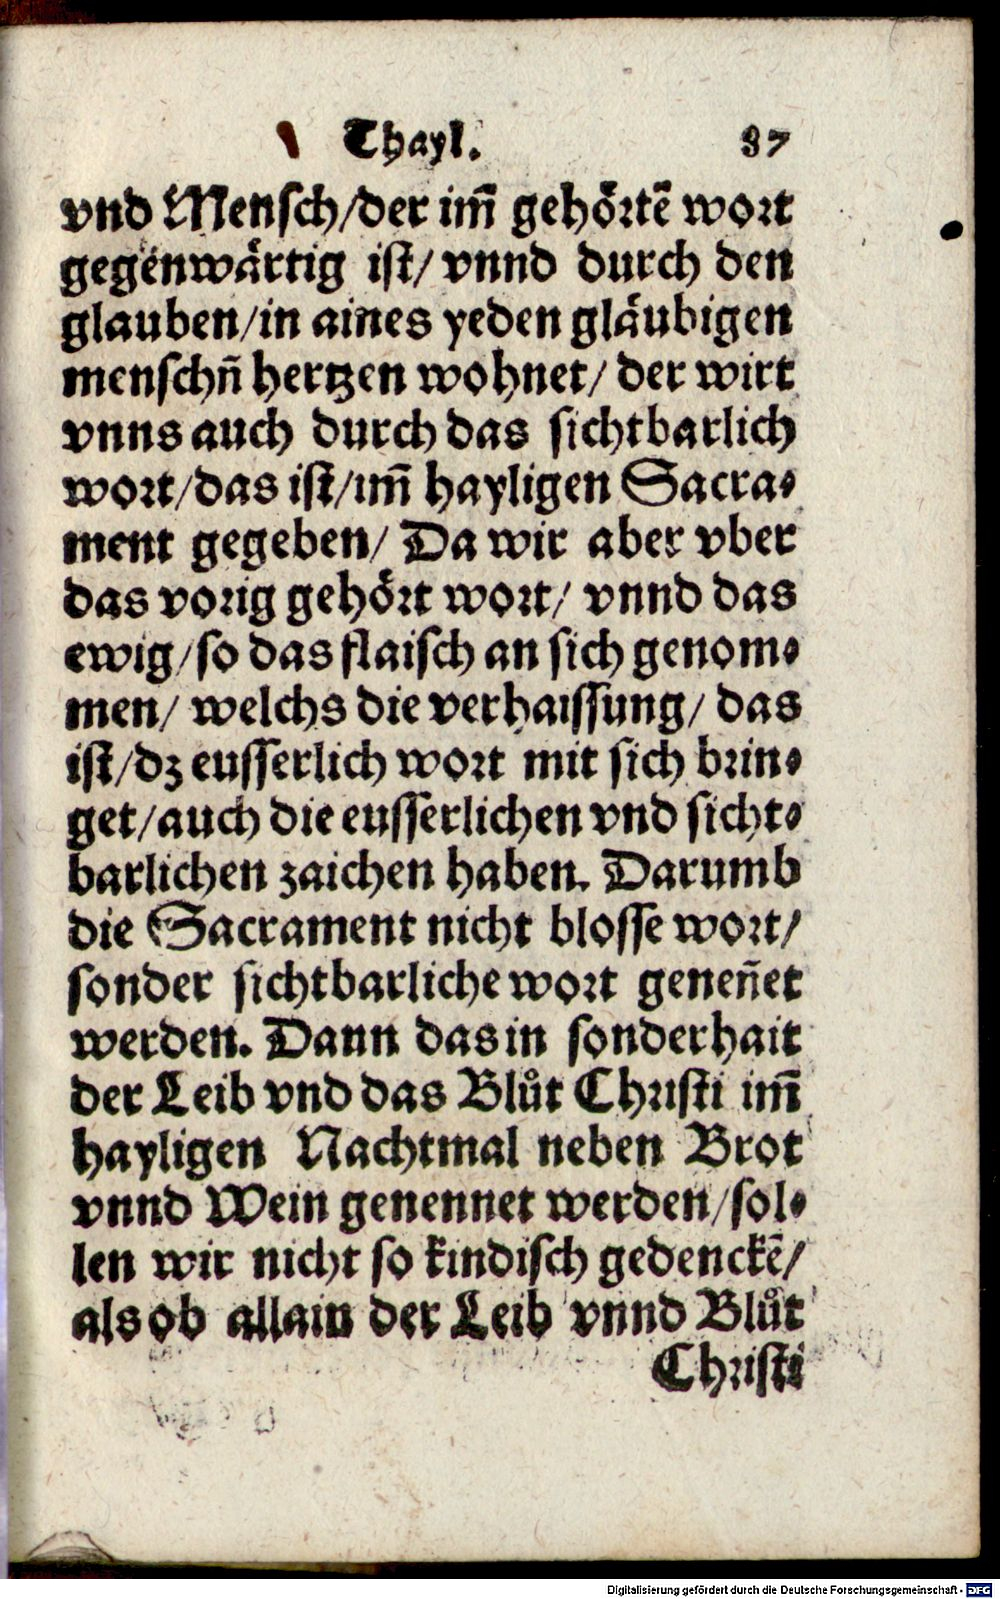 Thayl. 87
vnd Mensch/der im̃ gehörtẽ wort
gegenwärtig ist/ vnnd durch den
glauben/in aines yeden gläubigen
menschñ hertzen wohnet/ der wirt
vnns auch durch das sichtbarlich
wort/das ist/im̃ hayligen Sacra⸗
ment gegeben/ Da wir aber vber
das vorig gehört wort/ vnnd das
ewig/so das flaisch an sich genom⸗
men/ welchs die verhaissung/ das
ist/dz eusserlich wort mit sich brin⸗
get/auch die eusserlichen vnd sicht⸗
barlichen zaichen haben. Darumb
die Sacrament nicht blosse wort/
sonder sichtbarliche wort geneñet
werden. Dann das in sonderhait
der Leib vnd das Blůt Christi im̃
hayligen Nachtmal neben Brot
vnnd Wein genennet werden/sol⸗
len wir nicht so kindisch gedenckẽ/
als ob allain der Leib vnnd Blůt
Christi
Digitalisierung gefördert durch die Deutsche Forschungsgemeinschaft - DFG